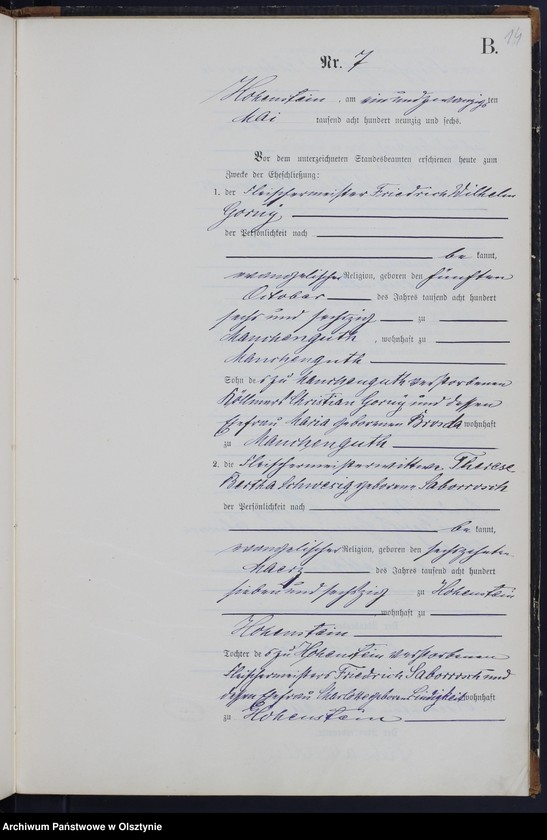 14
B.
Nr. 7
Hohenstein, am ein und zwanzigsten
Mai tausend acht hundert neunzig und sechs.
Vor dem unterzeichneten Standesbeamten erschienen heute zum
Zwecke der Eheschließung:
1. der Fleischermeister Friedrich Wilhelm
Gorny
der Persönlichkeit nach
be kannt,
evangelischer Religion, geboren den fünften
October des Jahres tausend acht hundert
sechs und sechszig zu
Manchenguth, wohnhaft zu
Manchenguth
Sohn des zu Manchenguth verstorbenen
Köllmers Christian Gorny und dessen
Ehefrau Maria geborenen Brosda wohnhaft
zu Manchenguth
2. die Fleischermeisterwittwe Therese
Bertha Schwesig geborene Saborrosch
der Persönlichkeit nach
be kannt,
evangelischer Religion, geboren den sechszehnten
Maerz des Jahres tausend acht hundert
sieben und sechszig zu Hohenstein
wohnhaft zu
Hohenstein
Tochter des zu Hohenstein verstorbenen
Fleischermeisters Friedrich Saborrosch und
dessen Ehefrau Charlotte geborene wohnhaft
zu Hohenstein
Archiwum Państwowe w Olsztynie